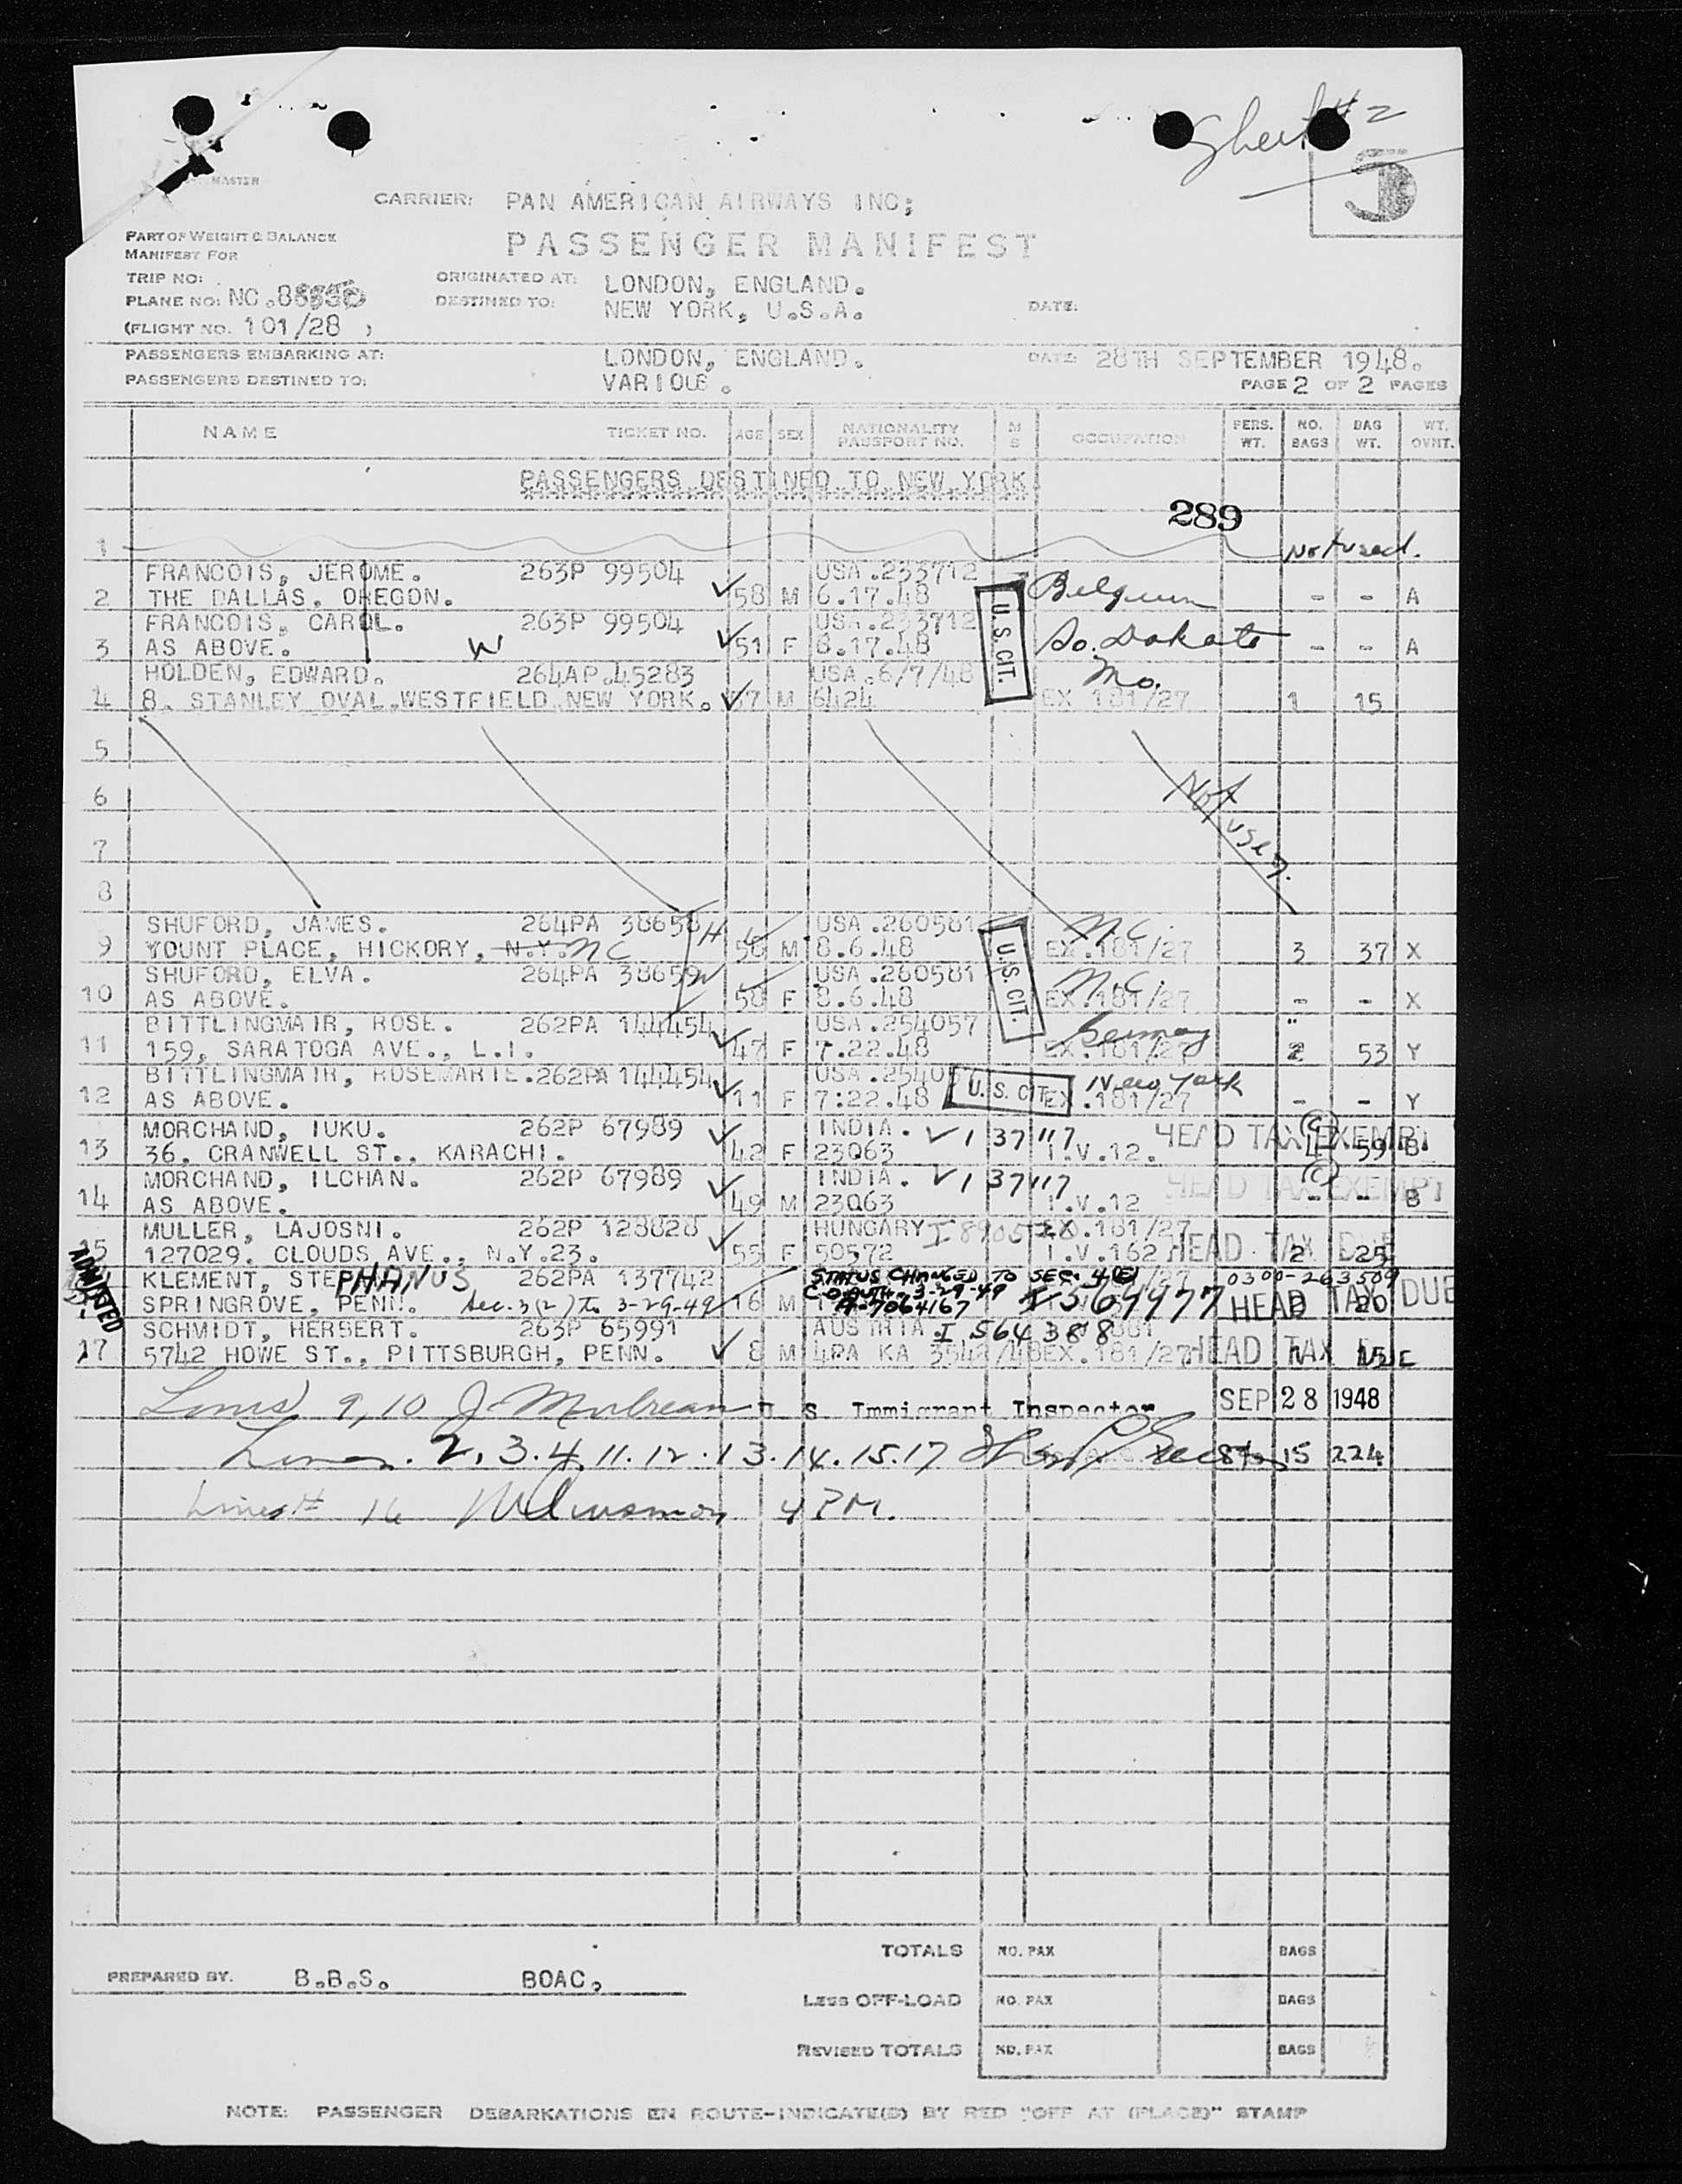 Sheet #2
5
MASTER
CARRIER: PAN AMERICAN AIRWAYS INC;
PART OF WEIGHT & BALANCE
MANIFEST FOR
PASSENGER MANIFEST
TRIP NO:
ORIGINATED AT: LONDON, ENGLAND.
PLANE NO: NC.
DESTINED TO: NEW YORK, U.S.A. DATE:
(FLIGHT NO. 101/28 )
PASSENGERS EMBARKING AT: LONDON, ENGLAND. DATE 28TH SEPTEMBER 1948.
PASSENGERS DESTINED TO: VARIOUS. PAGE 2 OF 2 PAGES
NAME TICKET NO. AGE SEX NATIONALITY PASSPORT NO. M S OCCUPATION PERS. WT. NO. BAGS BAG WT. WT. OVNT.
PASSENGERS DESTINED TO NEW YORK
289
1 Not used.
FRANCOIS, JEROME. 263P 99504 USA.233712
2 THE DALLAS, OREGON. 58 M 6.17.48 Belgium - - A
FRANCOIS, CAROL. 263P 99504 USA.233712
3 AS ABOVE. W 51 F 8.17.48 So. Dakota - - A
U.S.CIT.
HOLDEN, EDWARD. 264AP.45283 USA.6/7/48 Mo.
4 8. STANLEY OVAL.WESTFIELD NEW YORK. M 6424 EX 181/27 1 15
5
6
7
8
Not used.
SHUFORD, JAMES. 264PA 38658 H USA.260581 N.C.
9 YOUNT PLACE, HICKORY, N.Y. NC 56 M 8.6.48 EX.181/27 3 37 X
SHUFORD, ELVA. 264PA 38659 W USA.260581 N.C.
10 AS ABOVE. 58 F 8.6.48 EX.181/27 - - X
U.S.CIT.
BITTLINGMAIR, ROSE. 262PA 144454 USA.254057 Germany
11 159, SARATOGA AVE., L.I. 47 F 7.22.48 EX.181/27 2 53 Y
BITTLINGMAIR, ROSEMARIE. 262PA 144454 USA.254057 New York
12 AS ABOVE. 11 F 7:22.48 U.S.CIT. EX.181/27 - - Y
MORCHAND, IUKU. 262P 67989 INDIA. V 137117 HEAD TAX EXEMPT
13 36, CRANWELL ST., KARACHI. 42 F 23063 I.V.12. 4 59 B
MORCHAND, ILCHAN. 262P 67989 INDIA. V 137117 HEAD TAX EXEMPT
14 AS ABOVE. 49 M 23063 I.V.12 - - B
MULLER, LAJOSNI. 262P 128828 HUNGARY EX.181/27
15 127029. CLOUDS AVE., N.Y.23. 55 F 50572 I.V.162 HEAD TAX DUE 2 25
ADMITTED
KLEMENT, STEPHANUS 262PA 137742 STATUS CHANGED TO SEC. 4(E) 0300-263509
C.O. AUTH. 3-29-49 I 569977
SPRINGROVE, PENN. Sec. 3(2) to 3-29-49 16 M A-7064167 HEAD TAX DUE 20
SCHMIDT, HERBERT. 263P 65991 AUSTRIA. I 564388
17 5742 HOWE ST., PITTSBURGH, PENN. 8 M 4PA KA 3542/48 EX.181/27 HEAD TAX 15 E
Lines 9, 10 U S Immigrant Inspector SEP 28 1948
Lines. 2.3.4.11.12.13.14.15.17 15 224
Lines # 16 4 PM.
TOTALS NO. PAX BAGS
PREPARED BY. B.B.S. BOAC.
LESS OFF-LOAD NO. PAX BAGS
REVISED TOTALS NO. PAX BAGS
NOTE: PASSENGER DEBARKATIONS EN ROUTE-INDICATE(D) BY RED "OFF AT (PLACE)" STAMP